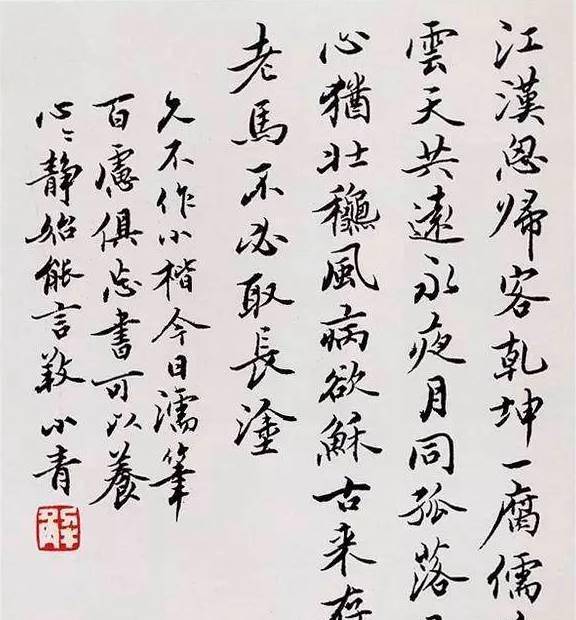 江漢思歸客乾坤一腐儒
雲天共遠永夜月同孤落
心猶壯穐風病欲穌古来存
老馬不必取長塗
久不作小楷今日濡筆
百慮俱忘書可以養
心〻靜始能言 小青